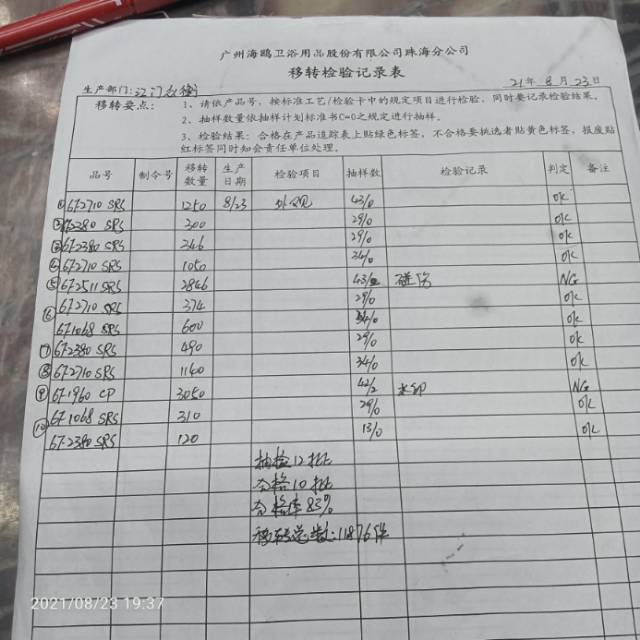 广州海鸥卫浴用品股份有限公司珠海分公司
移转检验记录表
生产部门: 21年8月23日
移转要点: 1、请依产品号,按标准工艺/检验卡中的规定项目进行检验,同时要记录检验结果。
2、抽样数量依抽样计划标准书C=0之规定进行抽样。
3、检验结果:合格在产品追踪表上贴绿色标签,不合格要挑选者贴黄色标签,报废贴
红标签同时知会责任单位处理。
品号 制令号 移转数量 生产日期 检验项目 抽样数 检验记录 判定 备注
① 67-2710 SRS 1250 8/23 外观 43/0 OK
② 67-2380 SRS 300 29/0 OK
③ 67-2380 SRS 246 29/0 OK
④ 67-2710 SRS 1050 34/0 OK
⑤ 67-2511 SRS 2846 43/2 碰伤 NG
⑥ 67-2710 SRS 374 29/0 OK
67-1068 SRS 600 34/0 OK
⑦ 67-2380 SRS 490 29/0 OK
⑧ 67-2710 SRS 1140 34/0 OK
⑨ 67-1960 CP 3050 42/2 水印 NG
67-1068 SRS 310 29/0 OK
67-2380 SRS 120 13/0 OK
抽检12批
合格10批
合格率83%
移转总数:11876件
2021/08/23 19:37